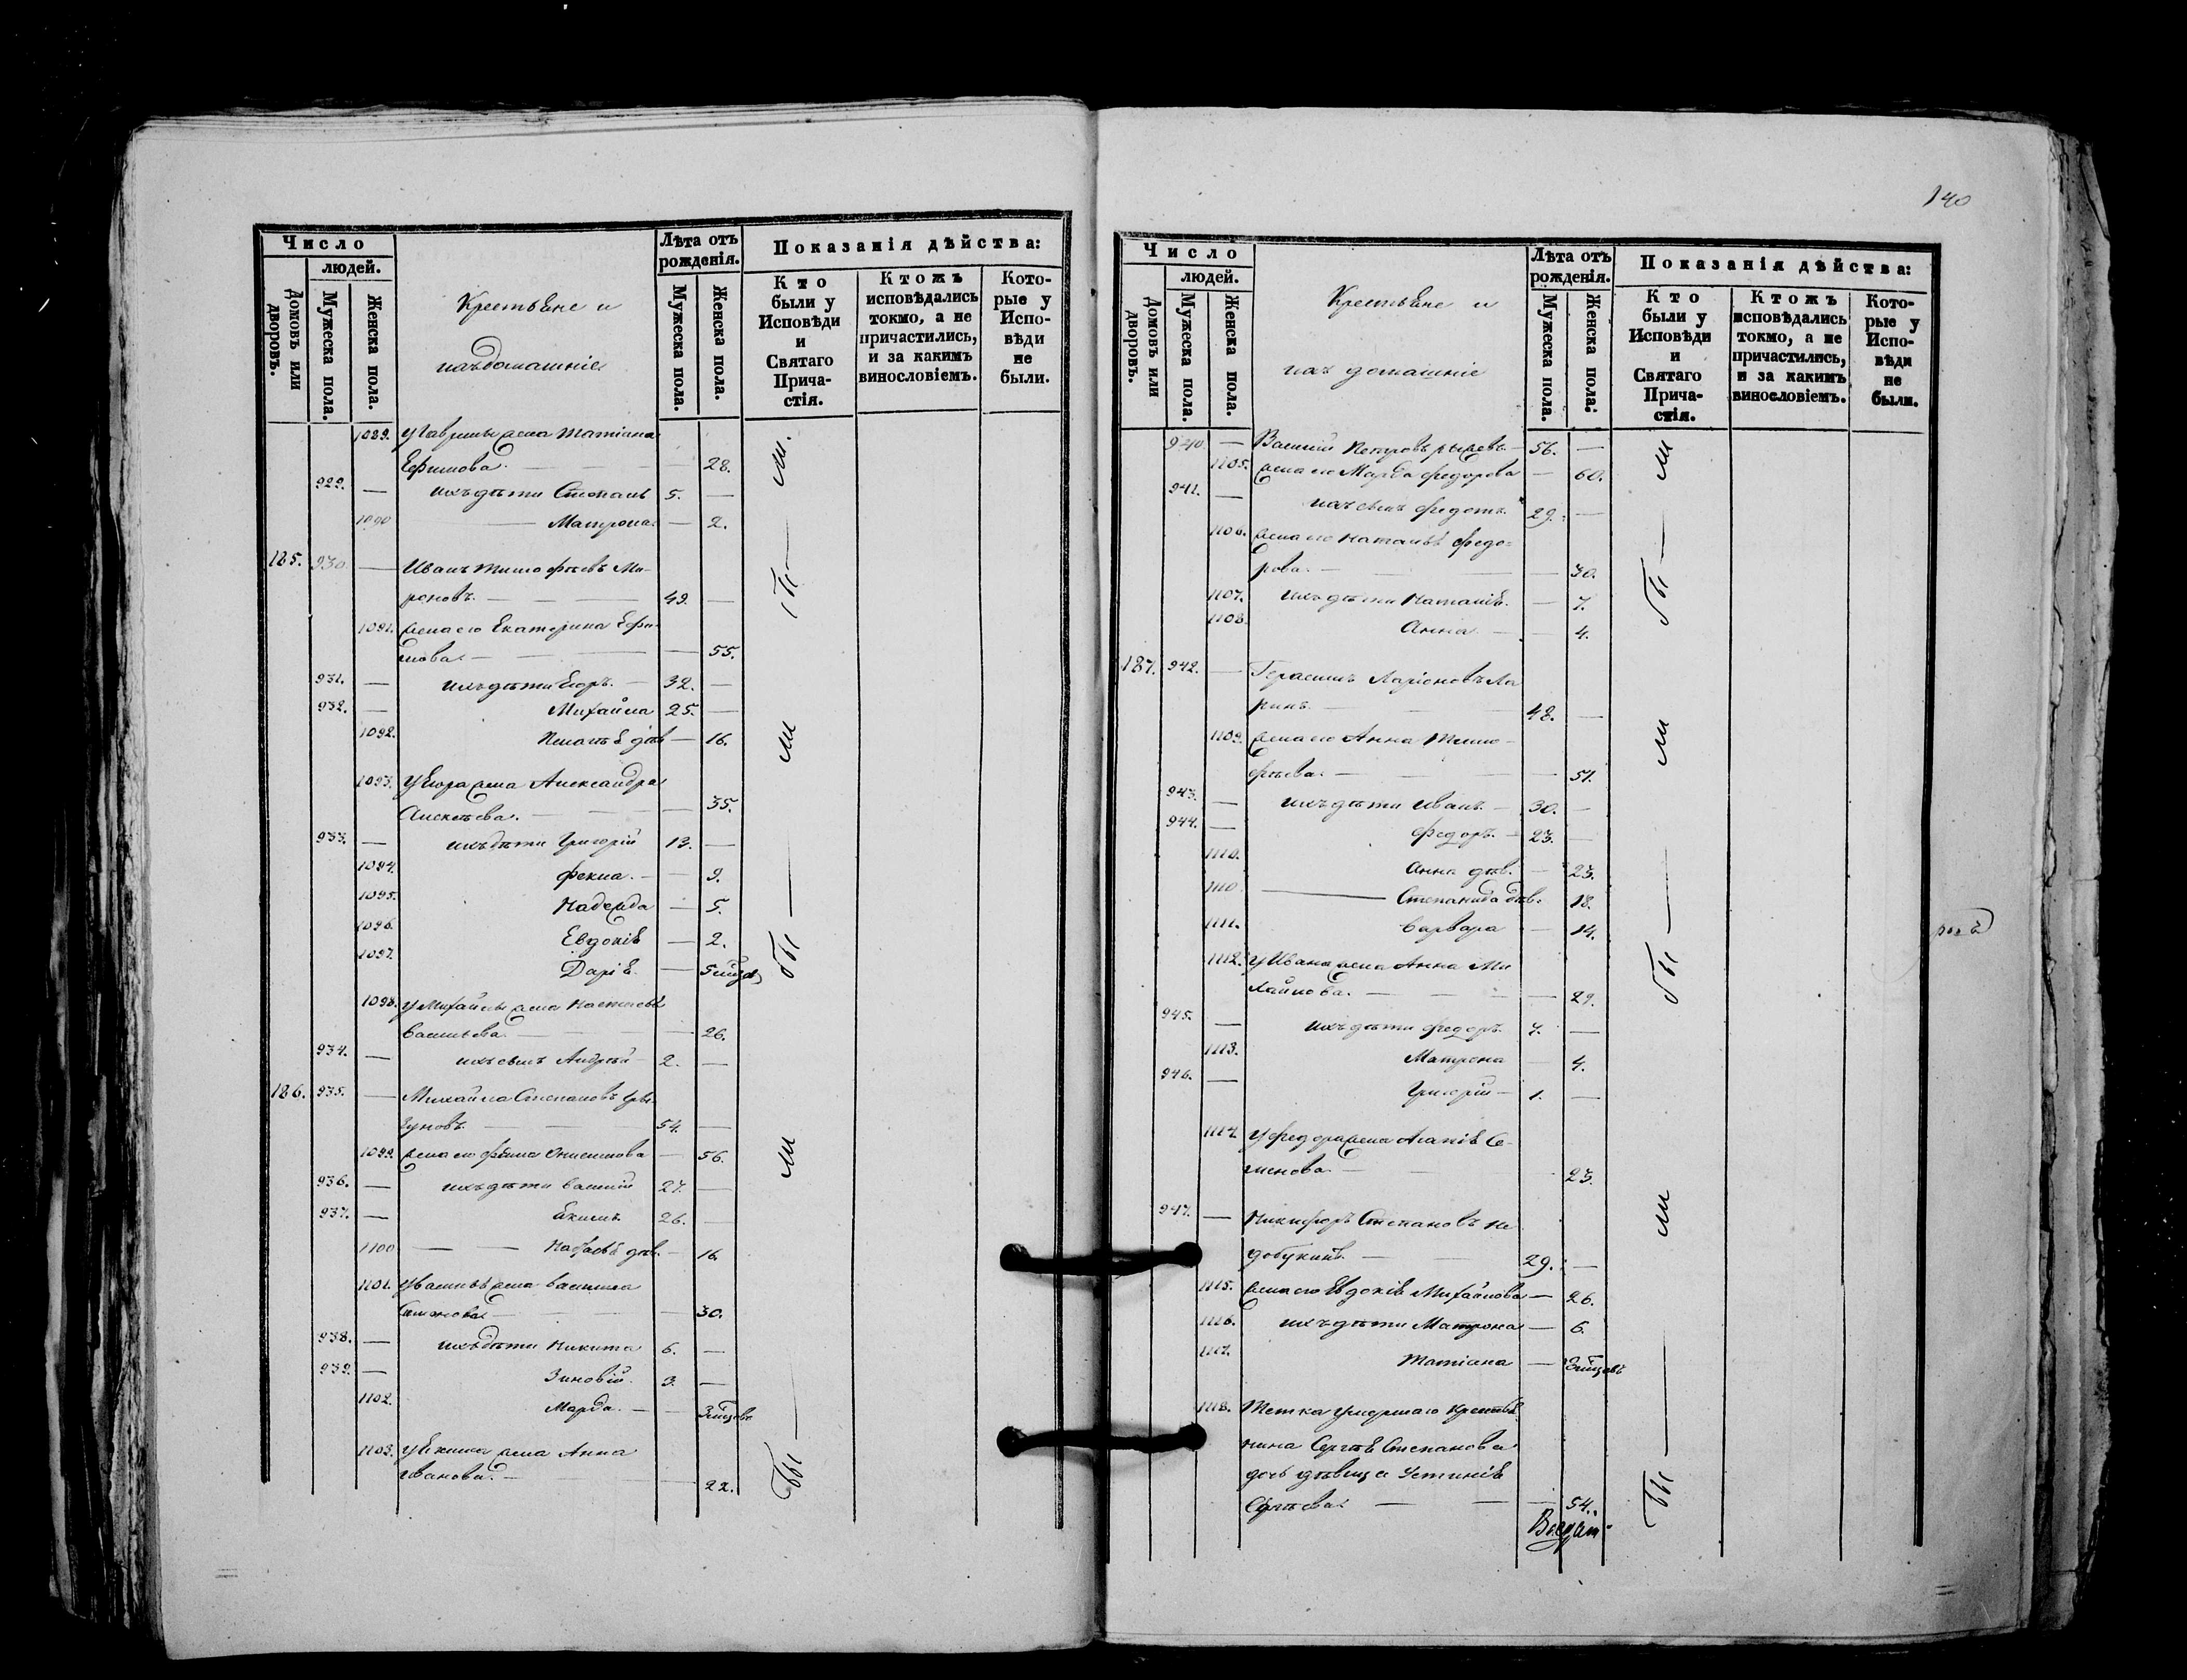 Число
людей.
Домовъ или дворовъ.
Мужеска пола.
Женска пола.
Крестьяне и
ихъ домашніе
Лѣта отъ рожденія.
Мужеска пола.
Женска пола.
Показанія дѣйства:
Кто были у Исповѣди и Святаго Причастія.
Ктожъ исповѣдались токмо, а не причастились, и за какимъ винословіемъ.
Которые у Исповѣди не были.
1089. У Гаврилы жена Татіана
Ефимова. — — 28.
929. — ихъ дѣти Степанъ 5. —
1090 — Матрона — 2.
185. 930. — Иванъ Тимофѣевъ Ми-
роновъ. — 49. —
1091. жена его Екатерина Ефи-
мова — — 55.
931. — ихъ дѣти Егоръ. — 32. —
932. — Михайла 25. —
1092. дѣв — 16.
1093. У Егора жена Александра
Алексѣева. — — 35.
933. — ихъ дѣти Григорій 13. —
1094. Фекла. — — 9.
1095. Надежда — 5.
1096. Евдокія — 2.
1097. Дарія. —
1098. У Михайлы жена Настасья
Васильева — — 26.
934. — ихъ сынъ Андрей 2. —
186. 935. — Михайла Степановъ
54. —
1099. жена его — 56.
936. — ихъ дѣти Василій 27. —
937. — Екимъ 26. —
1100 — дѣв. — 16.
1101. У Василья жена Василиса
— — 30.
938. — ихъ дѣти Никита 6. —
939. — Зиновій. 3. —
1102. Марѳа. —
1103. У Екима жена Анна
Иванова. — — 22.
бы — ли
бы — ли
бы — ли
140
Число
людей.
Домовъ или дворовъ.
Мужеска пола.
Женска пола.
Крестьяне и
ихъ домашніе
Лѣта отъ рожденія.
Мужеска пола.
Женска пола.
Показанія дѣйства:
Кто были у Исповѣди и Святаго Причастія.
Ктожъ исповѣдались токмо, а не причастились, и за какимъ винословіемъ.
Которые у Исповѣди не были.
940. — Василій Петровъ 56. —
1105. жена его Марѳа Федорова — 60.
941. — ихъ сынъ Федотъ. 29. —
1106. жена его Наталья Федо-
рова. — — 30.
1107. ихъ дѣти Наталія. — 7.
1108. Анна. — — 4.
187. 942. — Герасимъ Ларіоновъ Ла
ринъ. — 48. —
1109. жена его Анна Тимо-
фѣева. — — 51.
943. — ихъ дѣти Иванъ — 30. —
944. — Федоръ. — 23. —
1110. Анна дѣв. — 23.
1110 — Степанида дѣв. 18.
1111. Варвара — 14.
1112. У Ивана жена Анна Ми
хайлова. — — 29.
945. — ихъ дѣти Федоръ 7. —
1113. Матрона — 4.
946. — Григорій — 1. —
1114. У Федора жена Агапія Се-
менова. — 23.
947. — Никифоръ Степановъ
29. —
1115. жена его Евдокія Михайлова — 26.
1116. ихъ дѣти Матрона — 6.
1117. Татіана —
1118. Тетка умершаго крестья
нина Сергѣя Степанова
дочь дѣвица Устинія
Сергѣева. — — 54.
бы — ли
бы — ли
бы — ли